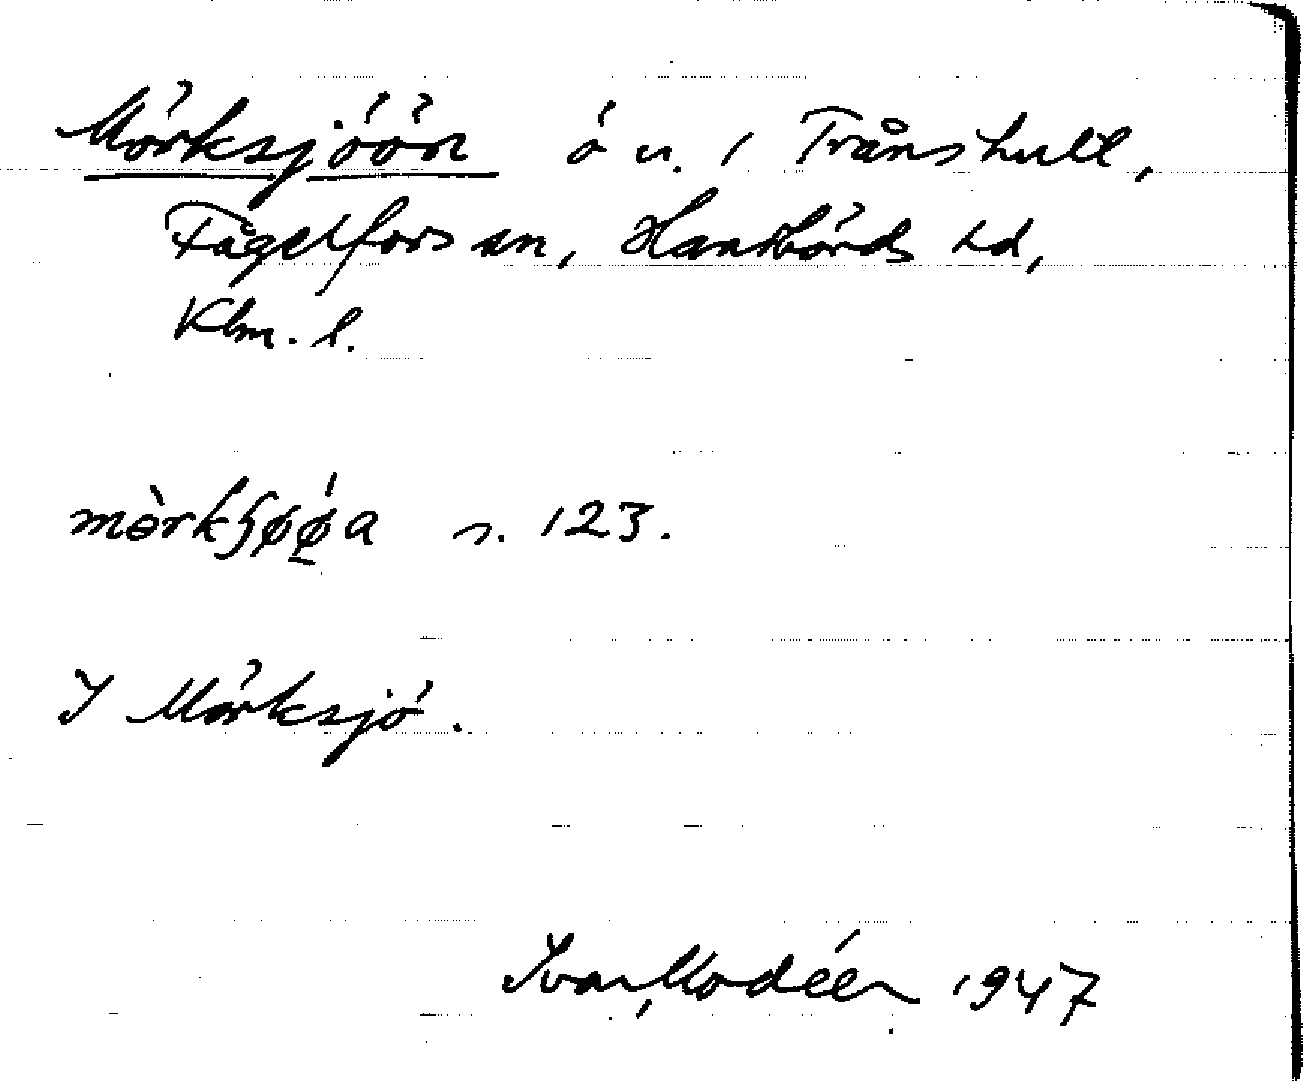 Mörksjöön ö u. i Trånshult,
Fågelfors sn, Handbörds hd,
Klm. l.
mòrkʃøǿ̱a s. 123.
I Mörksjö.
Ivar Modéer 1947